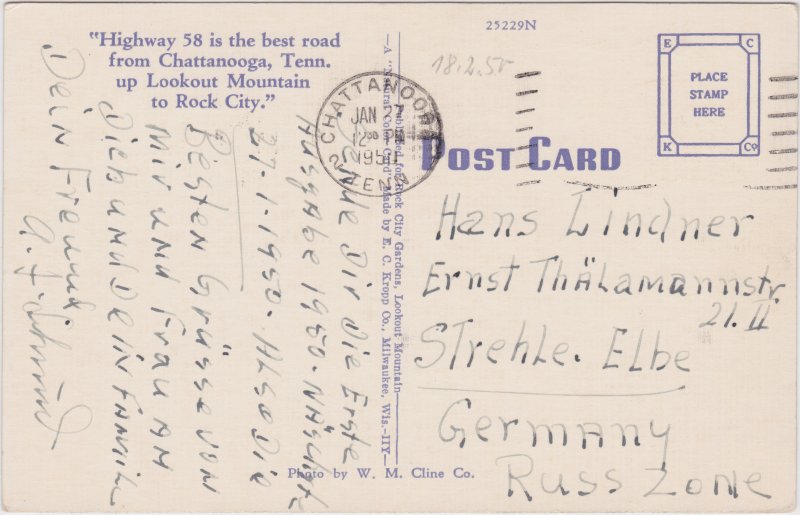 25229N
"Highway 58 is the best road
from Chattanooga, Tenn.
up Lookout Mountain
to Rock City."
18.2.50
PLACE
STAMP
HERE
E C
K Co
CHATTANOOGA
JAN
1950
TENN
2
POST CARD
Published for Rock City Gardens, Lookout Mountain
—A "Natural Color Card" Made by E. C. Kropp Co., Milwaukee, Wis.-11Y—
Hans Lindner
Ernst Thälamannstr.
21. II
Strehle. Elbe
Germany
Russ Zone
Sende Dir die Erste
Ausgabe 1950. Nächste
27-1-1950. Also Die
Besten Grüsse von
Mir und Frau am
Dich und Dein Famili
Dein Freund
Photo by W. M. Cline Co.